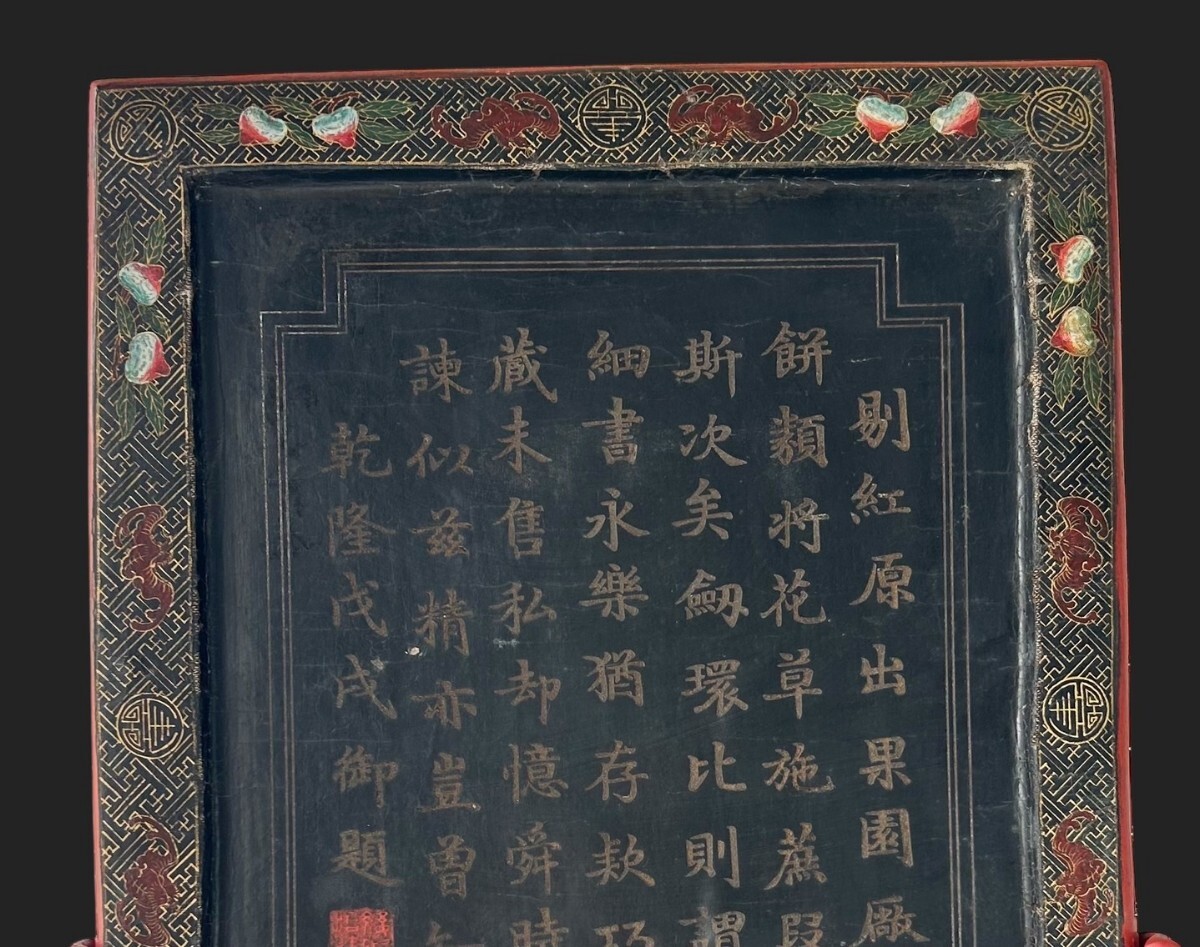 剔紅原出果園廠
餅類將花草施蔗段
斯次矣劒環比則謂
細書永樂猶存款巧
蔵未售私却憶舜時
諫似兹精亦豈曾
乾隆戊戌御題